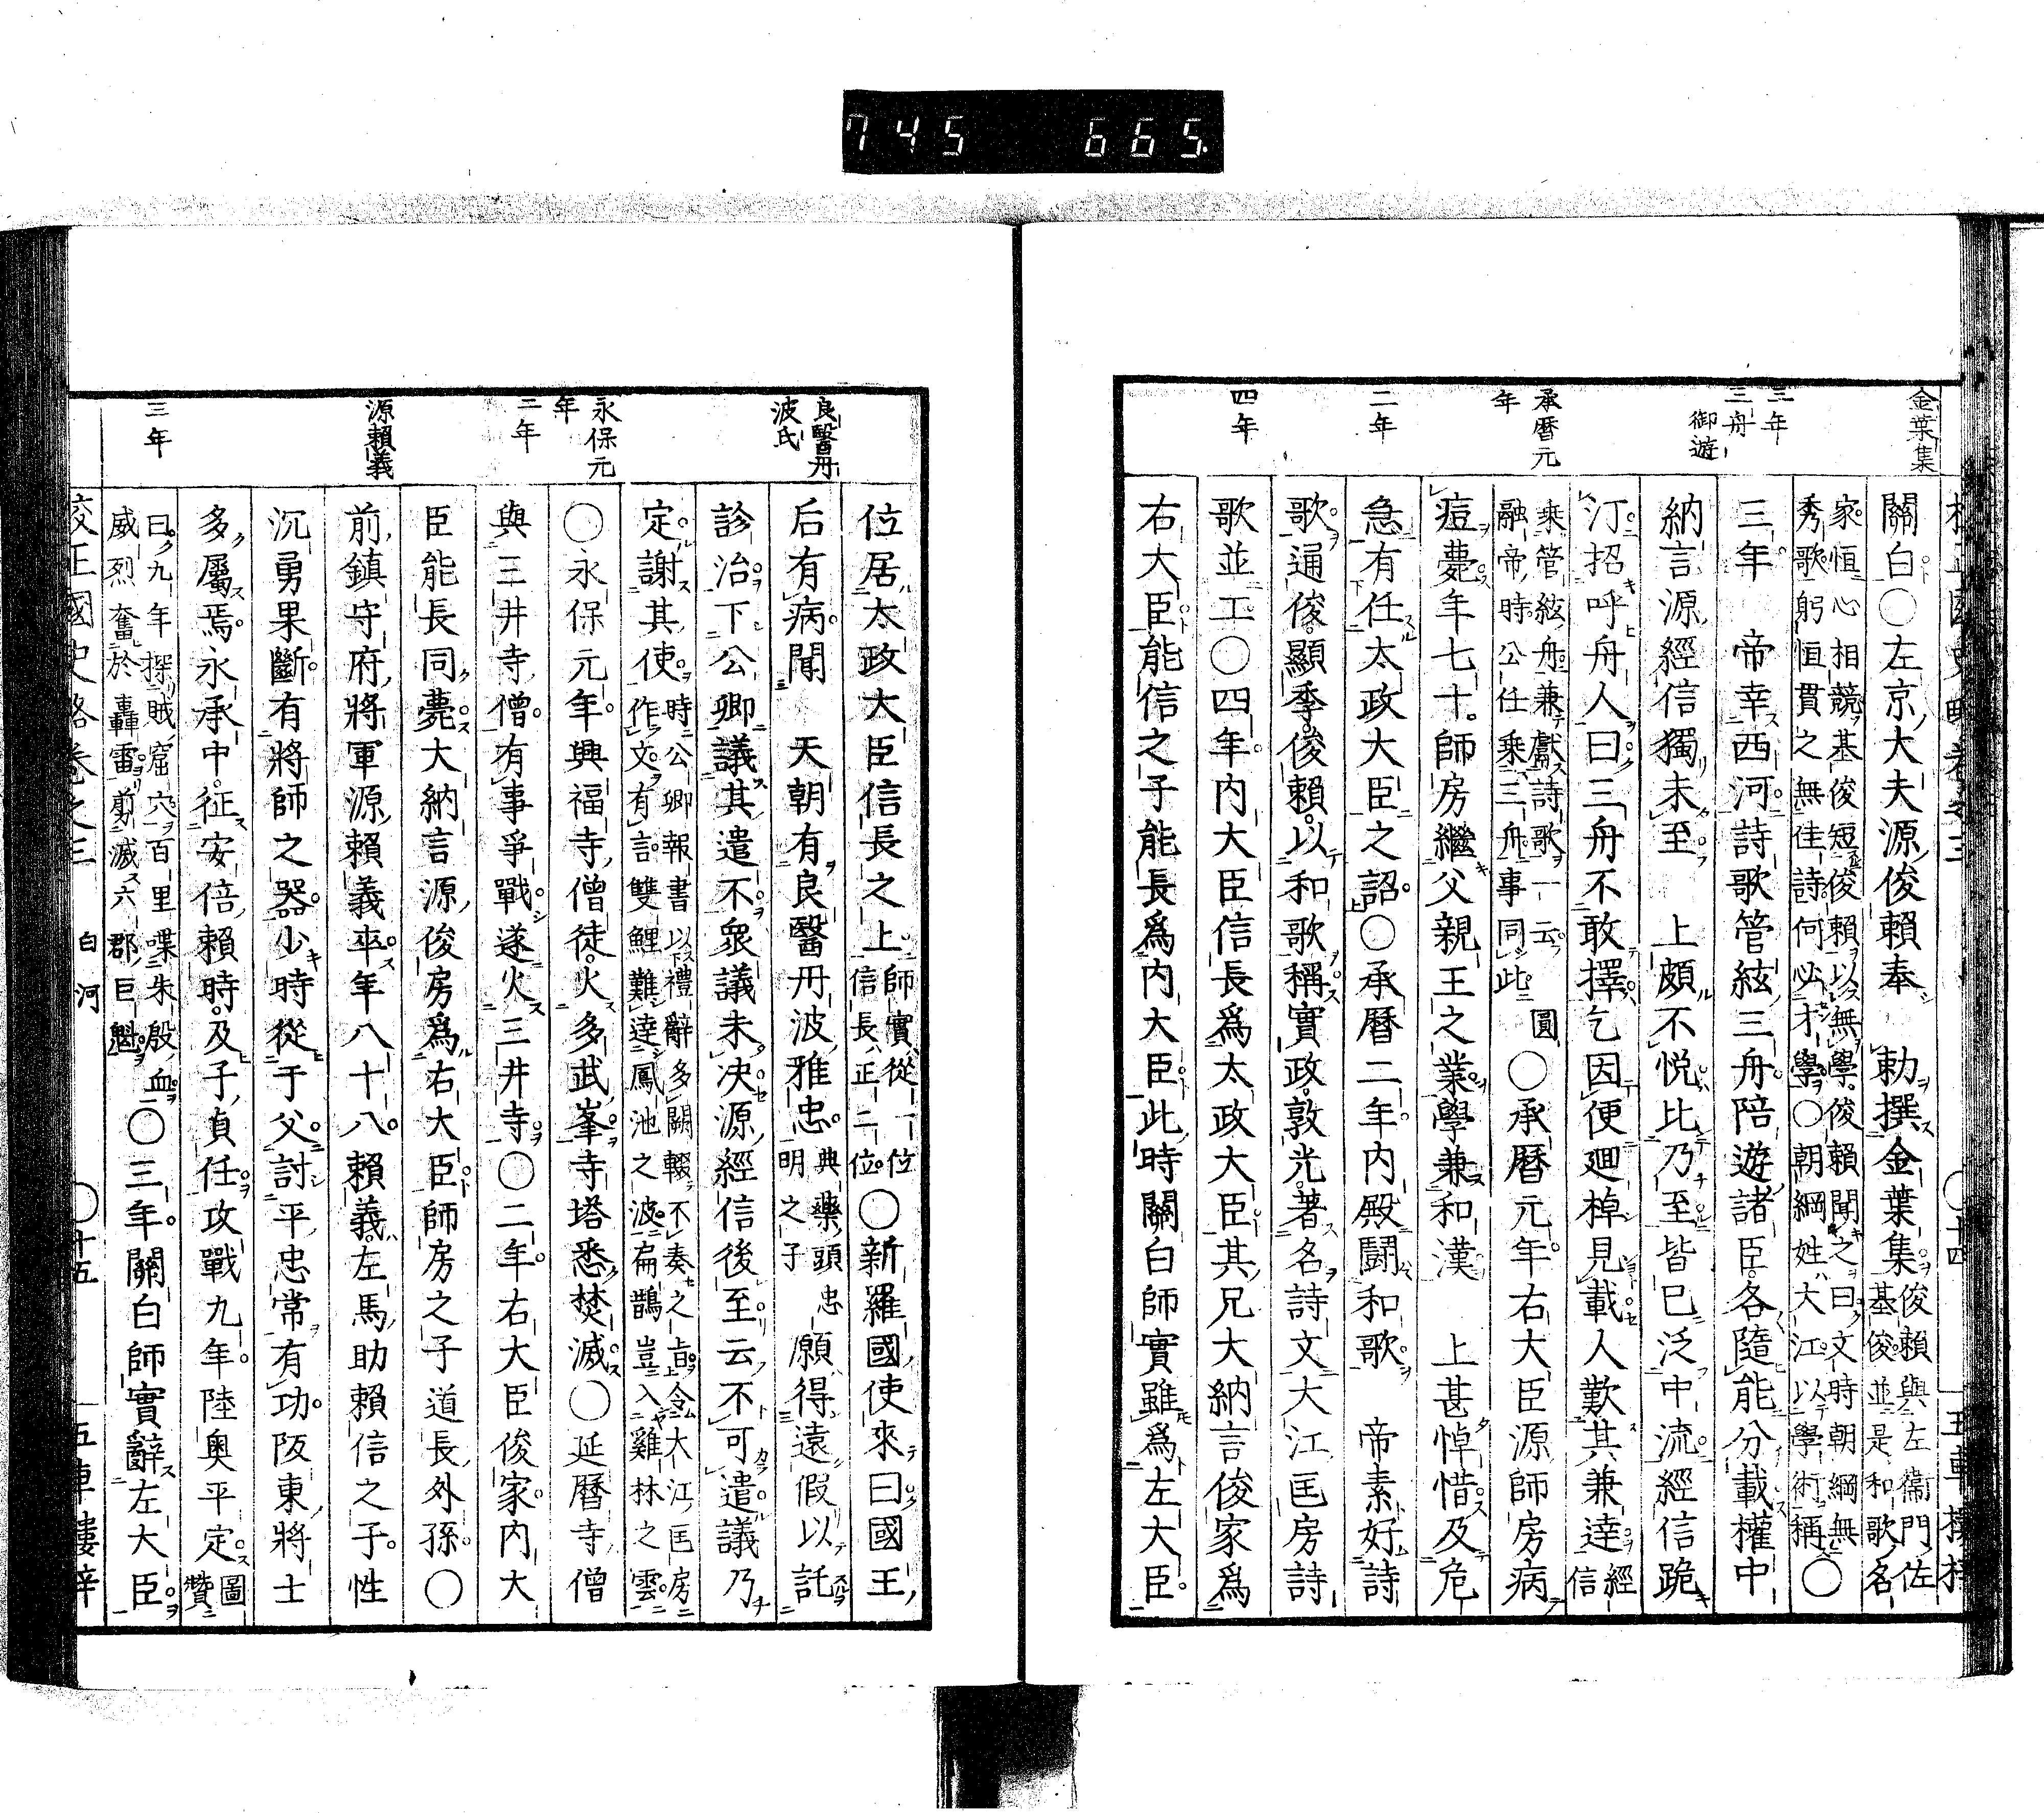 745 665.
金葉集
三年
三舟
御遊
承暦元
年
二年
四年
關白○左京大夫源俊賴奉　勅撰金葉集俊賴與左衞門佐
基俊並是和歌名
家恒心相競基俊短俊賴以無學俊賴聞之曰文時朝綱無
秀歌躬恒貫之無佳詩何必才學○朝綱姓大江以學術稱○
三年　帝幸西河詩歌管絃三舟陪遊諸臣各隨能分載權中
納言源經信獨未至　上頗不悦比乃至皆已泛中流經信跪
汀招呼舟人曰三舟不敢擇乞因便廻棹見載人歎其兼達經
信
乘管絃舟兼獻詩歌一云　圓
融帝時公任乘三舟事同此
○承暦元年右大臣源師房病
痘薨年七十師房繼父親王之業學兼和漢　上甚悼惜及危
急有任太政大臣之詔○承暦二年内殿鬪和歌　帝素好詩
歌通俊顯季俊賴以和歌稱實政敦光著名詩文大江匡房詩
歌並工○四年内大臣信長爲太政大臣其兄大納言俊家爲
右大臣能信之子能長爲内大臣此時關白師實雖爲左大臣
良醫丹
波氏
永保元
年
二年
源賴義
三年
位居太政大臣信長之上師實從一位
信長正二位○新羅國使來曰國王
后有病聞　天朝有良醫丹波雅忠典藥頭忠
明之子　願得遠假以託
診治下公卿議其遣不眾議未决源經信後至云不可遣議乃
定謝其使時公卿報書以禮辭多闕輟不奏之旨令大江匡房
作文有言雙鯉難達鳳池之波扁鵲豈入雞林之雲
○永保元年興福寺僧徒火多武峯寺塔悉焚滅○延暦寺僧
與三井寺僧有事爭戰遂火三井寺○二年右大臣俊家内大
臣能長同薨大納言源俊房爲右大臣師房之子道長外孫○
前鎮守府將軍源賴義卒年八十八賴義左馬助賴信之子性
沉勇果斷有將師之器少時從于父討平忠常有功阪東將士
多屬焉永承中征安倍賴時及子貞任攻戰九年陸奥平定圖
贊
曰九年探賊窟穴百里喋朱殷血
威烈奮於轟雷剪滅六郡巨魁○三年關白師實辭左大臣
白河
○十五